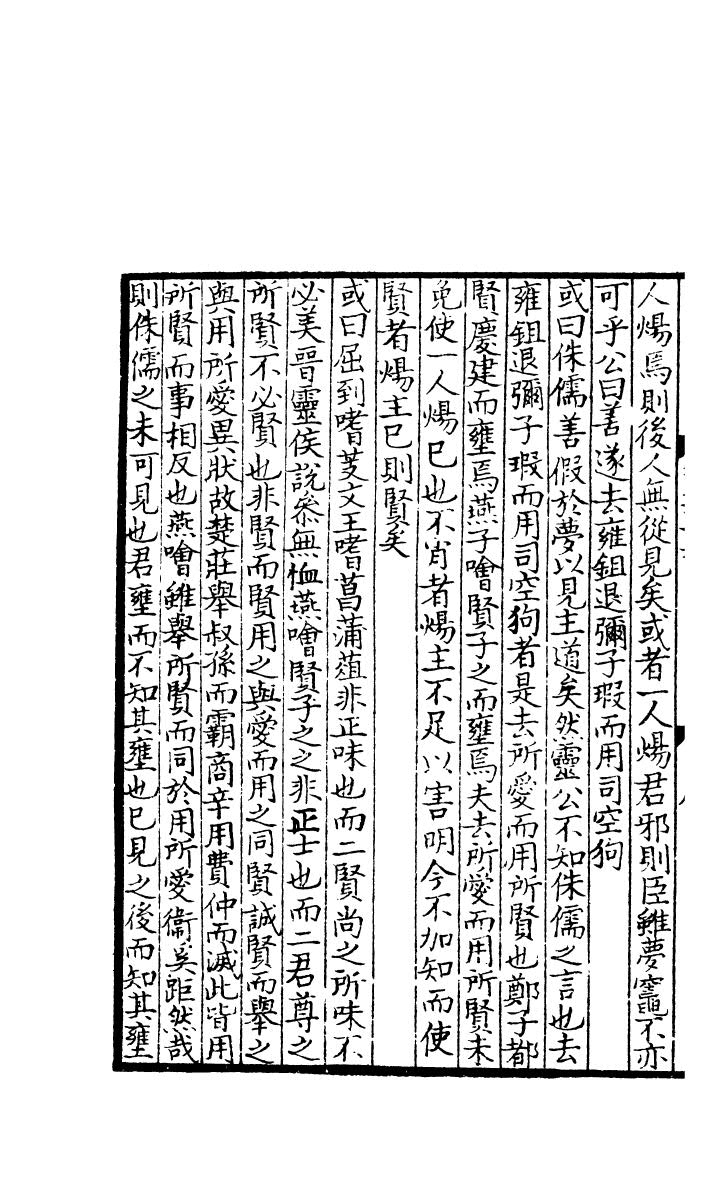 人煬焉則後人無從見矣或者一人煬君邪則臣雖夢竈不亦
可乎公曰善遂去雍鉏退彌子瑕而用司空狗
或曰侏儒善假於夢以見主道矣然靈公不知侏儒之言也去
雍鉏退彌子瑕而用司空狗者是去所愛而用所賢也鄭子都
賢慶建而壅焉燕子噲賢子之而壅焉夫去所愛而用所賢未
免使一人煬已也不肖者煬主不足以害明今不加知而使
賢者煬主已則賢矣
或曰屈到嗜芰文王嗜菖蒲葅非正味也而二賢尚之所味不
必美晉靈侯說參無恤燕噲賢子之非正士也而二君尊之
所賢不必賢也非賢而賢用之與愛而用之同賢誠賢而舉之
與用所愛異狀故楚莊舉叔孫而霸商辛用費仲而滅此皆用
所賢而事相反也燕噲雖舉所賢而同於用所愛衛奚距然哉
則侏儒之未可見也君壅而不知其壅也已見之後而知其壅